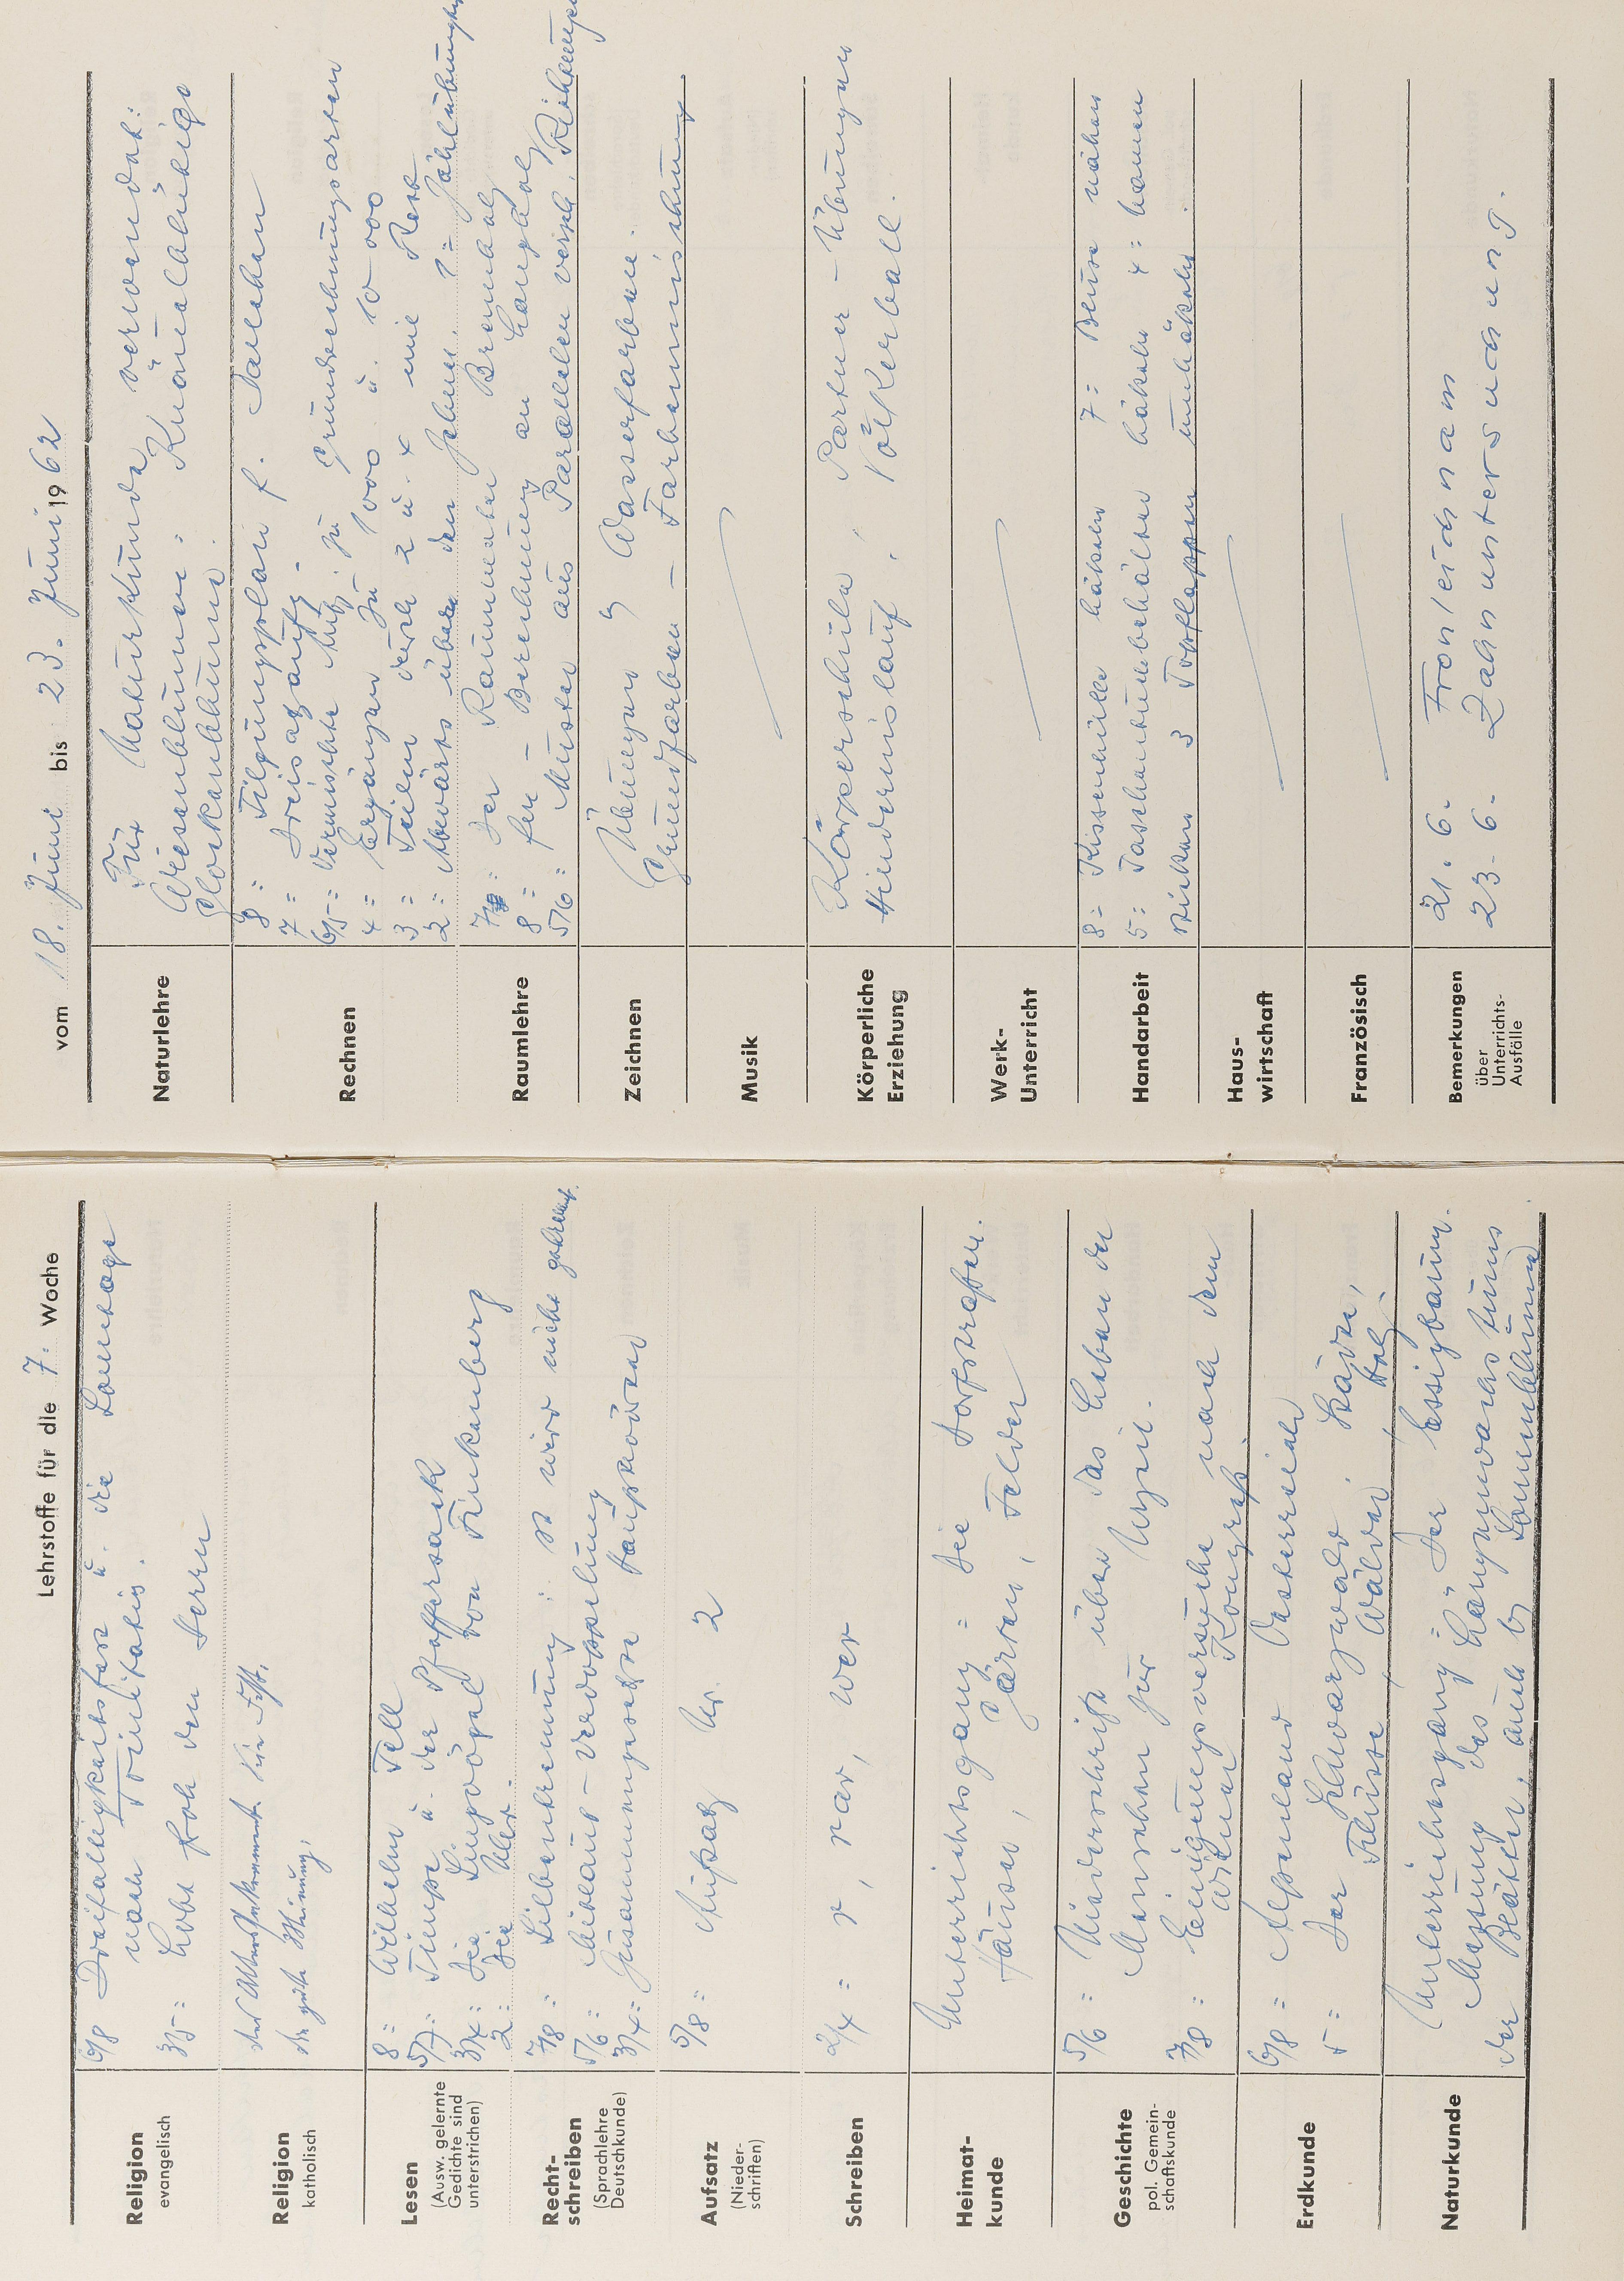 Lehrstoffe für die 7. Woche
Religion
evangelisch
6/8 Dreifaltigkeitsfest u. die Sonntage
nach Trinitatis.
3/5 = Lobt froh den Herrn
Religion
katholisch
Das Altarssakrament. Ein Fest,
Die gute Meinung,
Lesen
(Ausw. gelernte
Gedichte sind
unterstrichen)
8 = Wilhelm Tell
5/7 = Timpe u. der Pfeffersack
3/4 = Die Singvögel von Finkenberg
2 = Die Uhr.
Recht-
schreiben
(Sprachlehre
Deutschkunde)
7/8 = Silbentrennung: st wird nicht getrennt.
5/6 = Mitlaut-Verdoppelung
3/4 = Zusammengesetzte Hauptwörter
Aufsatz
(Nieder-
schriften)
5/8 = Aufsatz Nr. 2
Schreiben
2/4 = r, rar, wer
Heimat-
kunde
Unterrichtsgang = Die Dorfstraßen.
Häuser, Gärten, Felder
Geschichte
pol. Gemein-
schaftskunde
5/6 = Niederschrift über das Leben der
Menschen zur Urzeit.
7/8 = Einigungsversuche nach dem
Wiener Kongreß.
Erdkunde
6/8 = Alpenland Oesterreich
5 = Der Schwarzwald. Städte,
Flüsse, Wälder, Holz.
Naturkunde
Unterrichtsgang = Der Essigbaum.
Messung des Längenwachstums
der Blätter, auch b. Sonnenblume
vom 18. Juni bis 23. Juni 1962
Naturlehre
Für Naturkunde verwendet:
Wiesenblumen: Knäuelblütige
Glockenblume.
Rechnen
8 = Tilgungsplan f. Darlehen
7 = Dreisatzaufg.
6/5 = Vermischte Aufg. zu Grundrechnungsarten
4 = Ergänzen zu 1000 u. 10 000
3 = Teilen durch 2 u. 4 mit Rest
2 = Abwärts über den Zehner. 1 = Zählübungen
Raumlehre
7 = Der Raummeter Brennholz
8 = fm - Berechnung an Langholz
5/6 = Muster aus Parallelen versch. Richtungen
Zeichnen
Übungen z. Wasserfarben.
Grundfarben - Farbenmischung
Musik
Körperliche
Erziehung
Körperschule, Partner-Übungen
Hindernislauf, Völkerball.
Werk-
Unterricht
Handarbeit
8 = Kissenhülle häkeln 7 = Bluse nähen
5 = Taschentuchbehälter häkeln 4 = Namen
sticken 3 Topflappen umhäkeln.
Haus-
wirtschaft
Französisch
Bemerkungen
über
Unterrichts-
Ausfälle
21. 6. Fronleichnam
23. 6. Zahnuntersuchung.